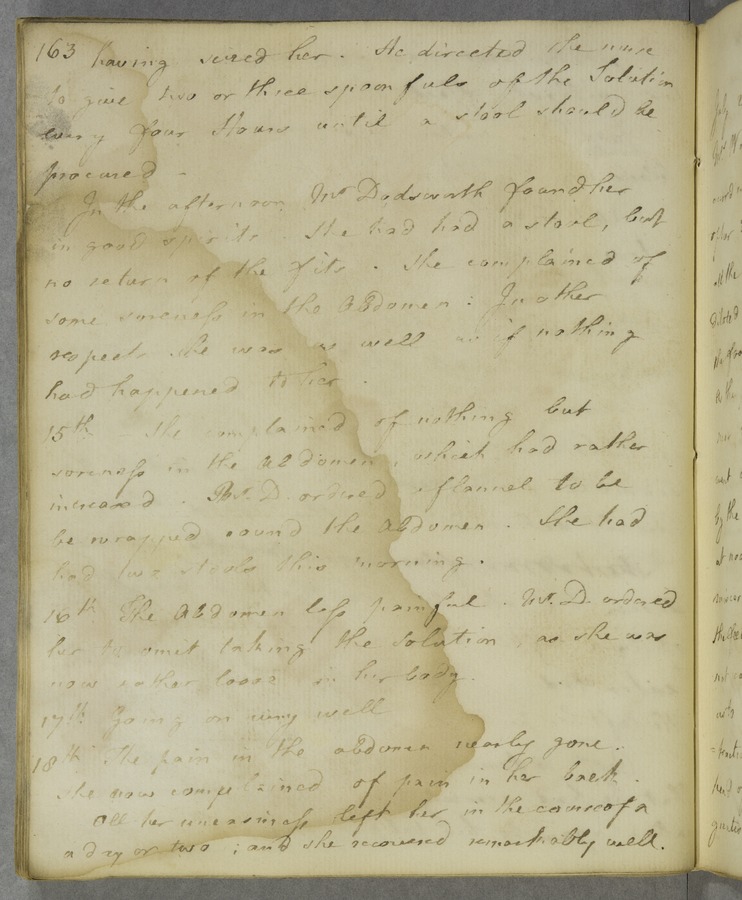 163 having seized her. He directed the nurse
to give two or three spoonfuls of the Solution
every four Hours until a stool should be
procured -
In the afternoon Mr Dodsworth found her
in good spirits. She had had a stool, but
no return of the fits. She complained of
some soreness in the Abdomen: In other
respects she was as well as if nothing
had happened to her.
15th - She complained of nothing but
soreness in the Abdomen, which had rather
increased. Mr. D. ordered a flannel to be
be wrapped round the Abdomen. She had
had two stools this morning.
16th The Abdomen less painful. Mr. D. ordered
her to omit taking the Solution, as she was
now rather loose in her body.
17th Going on very well
18th The pain in the abdomen nearly gone.
She now complained of pain in her back.
All her uneasiness left her in the course of a
a day or two; and she recovered remarkably well.